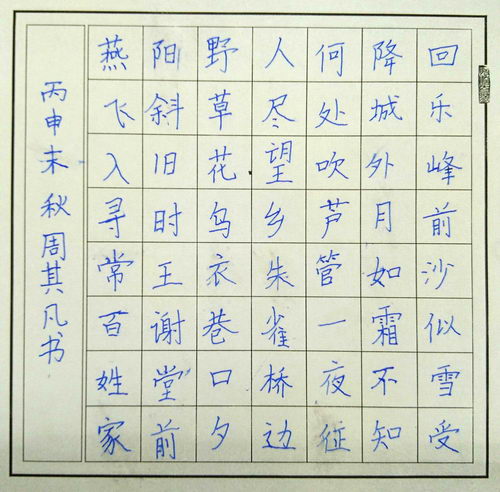 回乐峰前沙似雪受
降城外月如霜不知
何处吹芦管一夜征
人尽望乡朱雀桥边
野草花乌衣巷口夕
阳斜旧时王谢堂前
燕飞入寻常百姓家
丙申末秋周其凡书